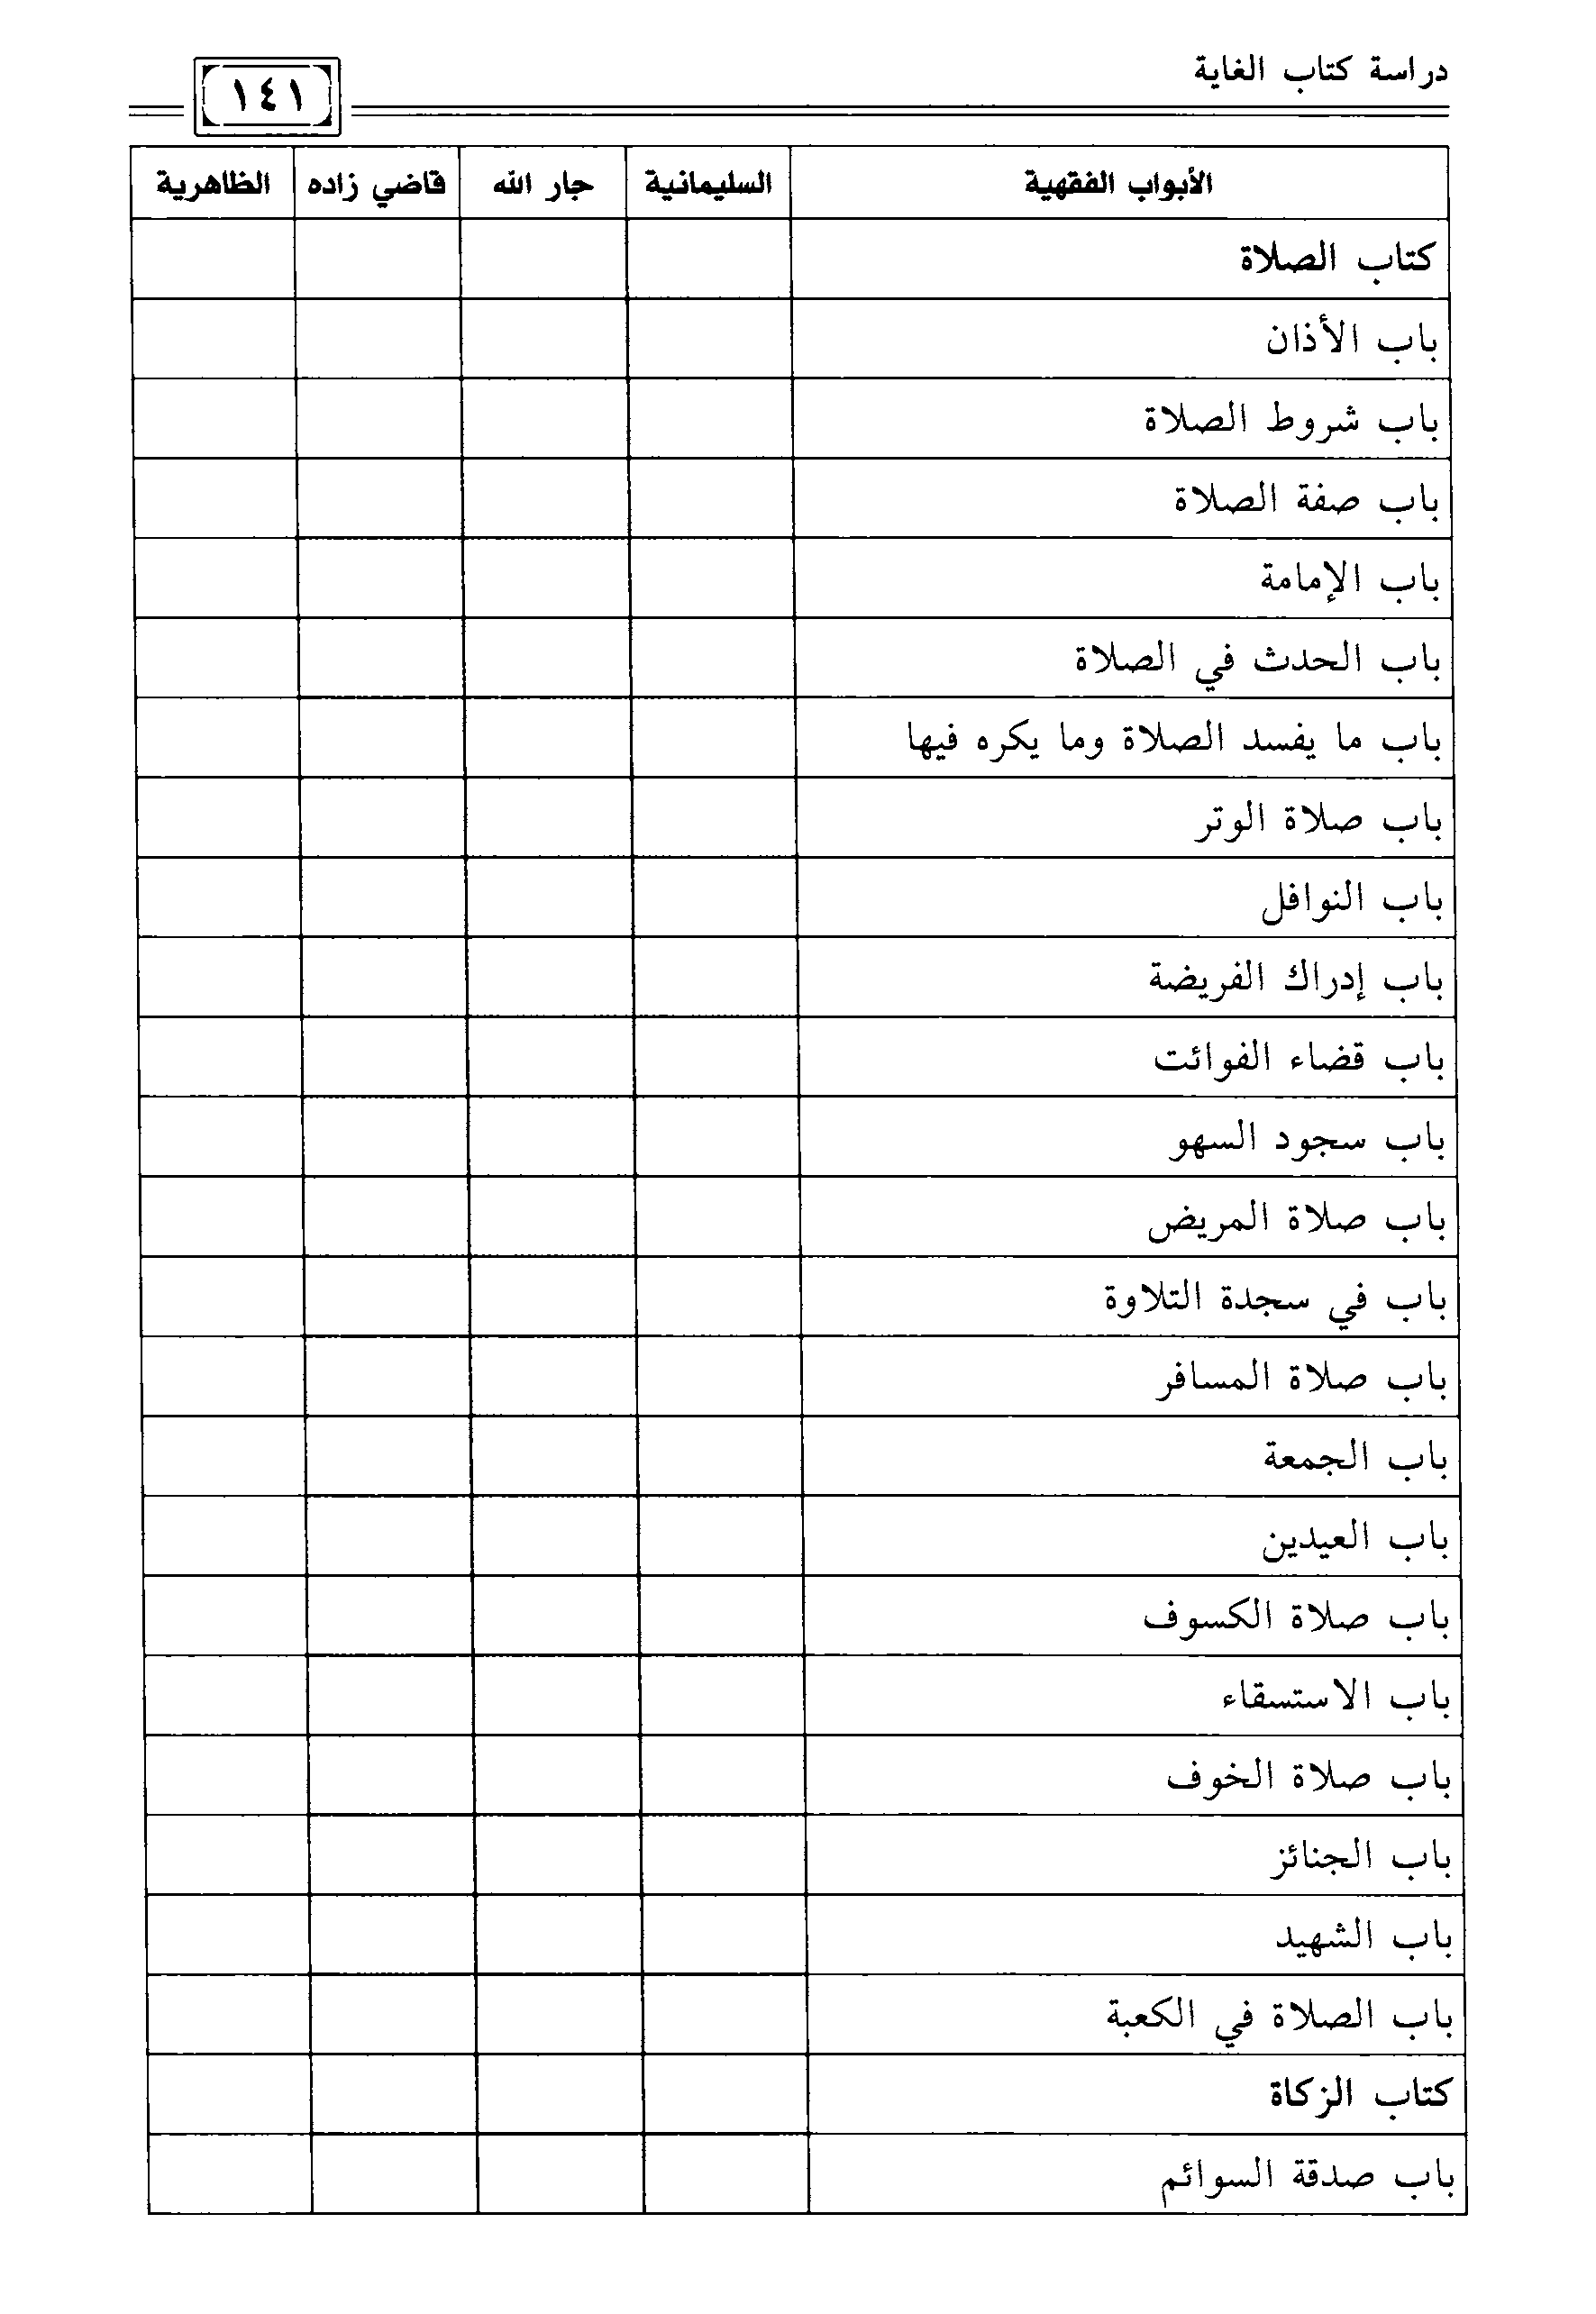 دراسة كتاب الغاية
١٤١
الأبواب الفقهية السليمانية جار الله قاضي زاده الظاهرية
كتاب الصلاة
باب الأذان
باب شروط الصلاة
باب صفة الصلاة
باب الإمامة
باب الحدث في الصلاة
باب ما يفسد الصلاة وما يكره فيها
باب صلاة الوتر
باب النوافل
باب إدراك الفريضة
باب قضاء الفوائت
باب سجود السهو
باب صلاة المريض
باب في سجدة التلاوة
باب صلاة المسافر
باب الجمعة
باب العيدين
باب صلاة الكسوف
باب الاستسقاء
باب صلاة الخوف
باب الجنائز
باب الشهيد
باب الصلاة في الكعبة
كتاب الزكاة
باب صدقة السوائم